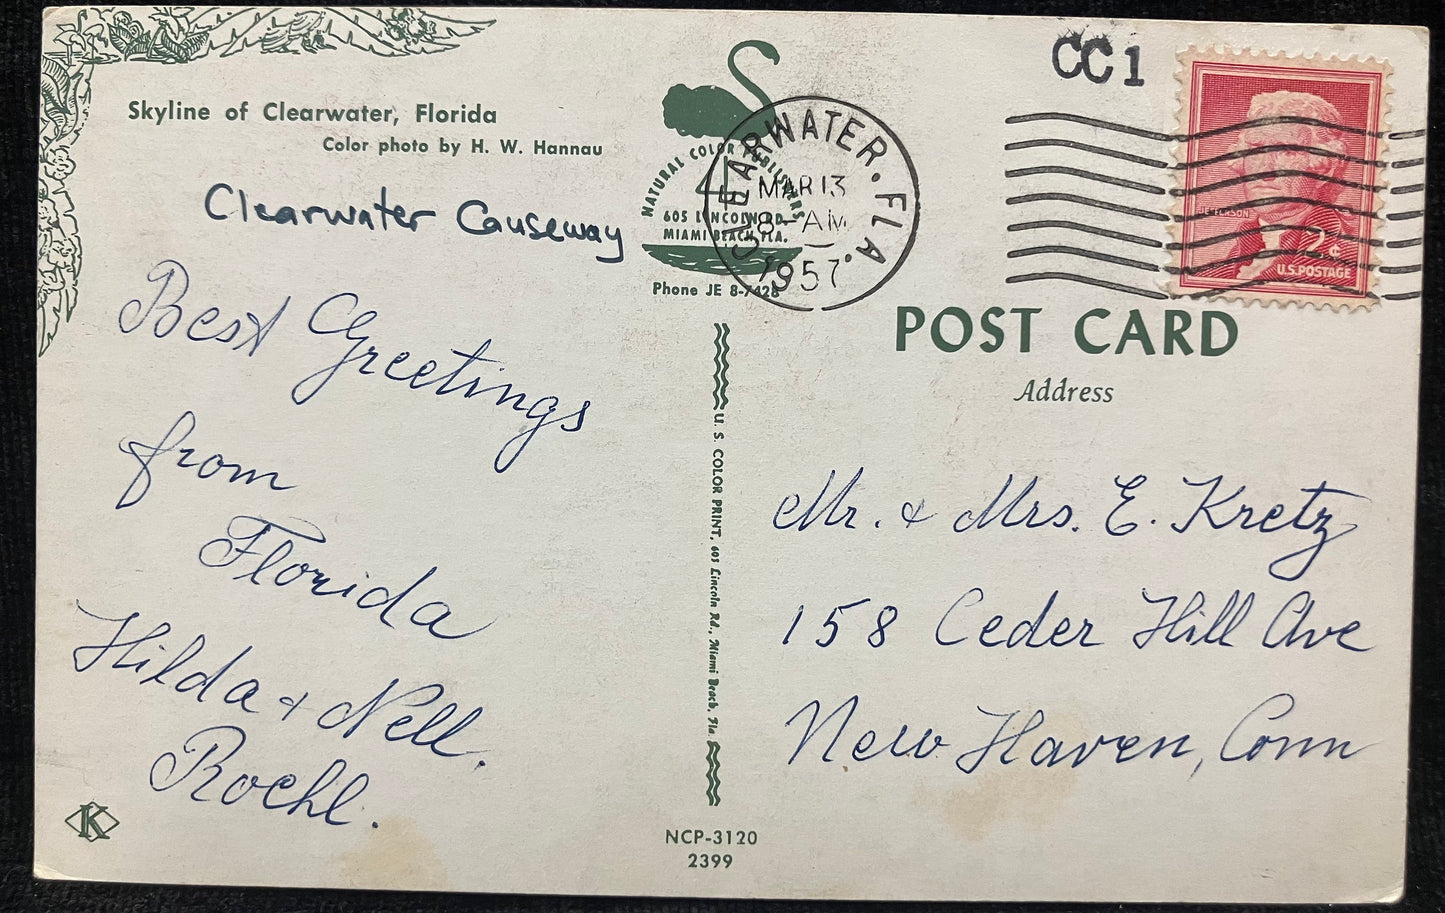 Skyline of Clearwater, Florida
Color photo by H. W. Hannau
Clearwater Causeway
Best Greetings
from
Florida
Hilda & Nell.
Roehl.
K
NATURAL COLOR
605 LINCOLN RD.
MIAMI BEACH, FLA.
Phone JE 8-7428
CLEARWATER. FLA.
MAR 13
8-AM
1957
CC1
JEFFERSON
2¢
U.S. POSTAGE
POST CARD
Address
Mr. & Mrs. E. Kretz
158 Ceder Hill Ave
New Haven, Conn
U. S. COLOR PRINT, 605 Lincoln Rd., Miami Beach, Fla.
NCP-3120
2399